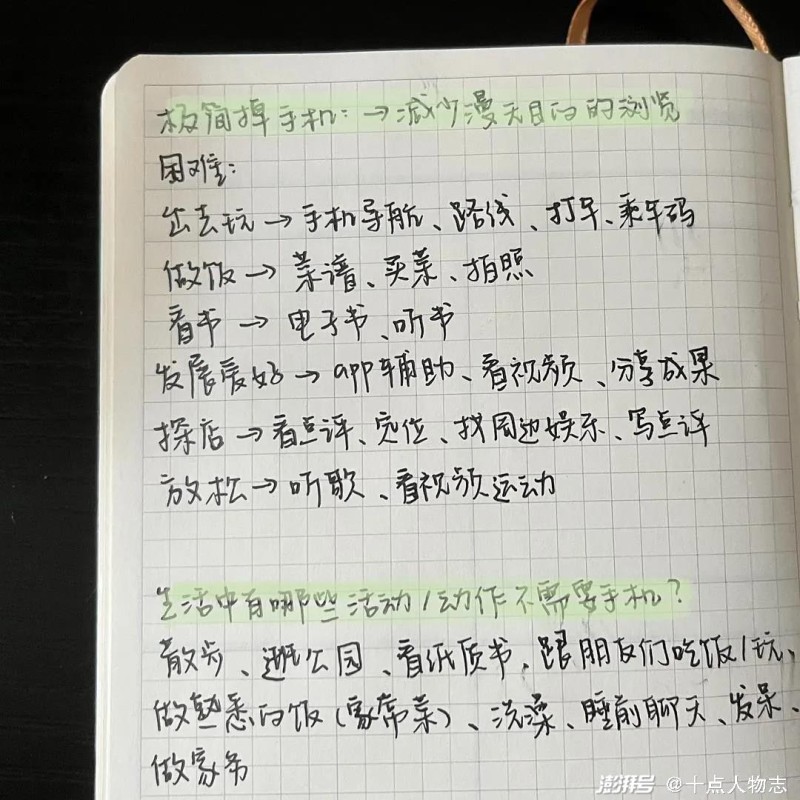 极简掉手机：→减少漫无目的的浏览
困难：
出去玩→手机导航、路线、打车、乘车码
做饭→菜谱、买菜、拍照
看书→电子书、听书
发展爱好→app辅助、看视频、分享成果
探店→看点评、定位、找周边娱乐、写点评
放松→听歌、看视频运动
生活中有哪些活动/动作不需要手机？
散步、逛公园、看纸质书、跟朋友们吃饭/玩、
做熟悉的饭（家常菜）、洗澡、睡前聊天、发呆、
做家务
澎湃号 @十点人物志